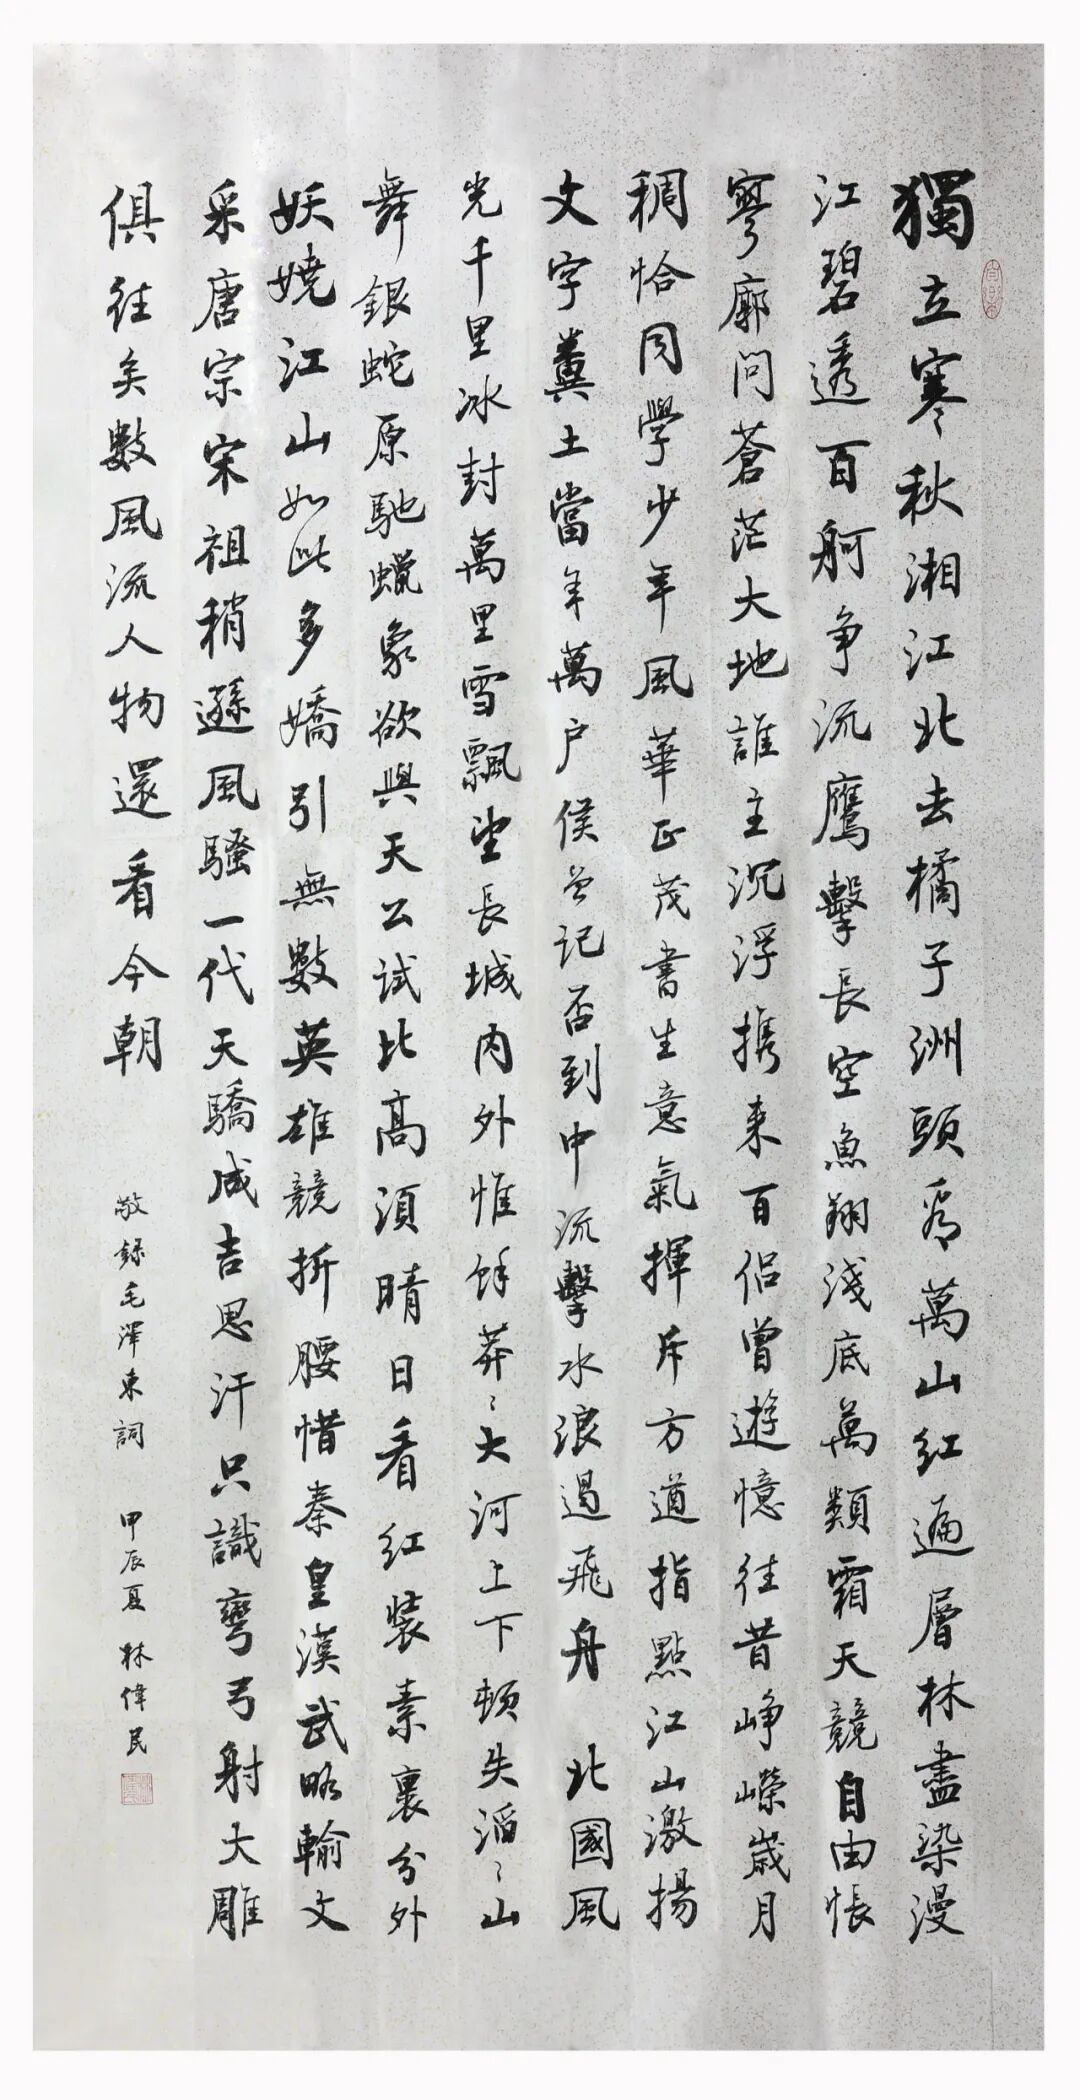 獨立寒秋湘江北去橘子洲頭看萬山紅遍層林盡染漫
江碧透百舸争流鷹擊長空魚翔淺底萬類霜天競自由悵
寥廓問蒼茫大地誰主沉浮携来百侣曾遊憶往昔崢嶸歲月
稠恰同學少年風華正茂書生意氣揮斥方遒指點江山激揚
文字糞土當年萬户侯曾记否到中流擊水浪遏飛舟 北國風
光千里冰封萬里雪飄望長城内外惟餘莽〻大河上下頓失滔〻山
舞銀蛇原馳蠟象欲與天公试比高須晴日看红裝素裹分外
妖嬈江山如此多嬌引無數英雄競折腰惜秦皇漢武略輸文
采唐宗宋祖稍遜風騷一代天驕成吉思汗只識彎弓射大雕
俱往矣數風流人物還看今朝
敬録毛澤東詞 甲辰夏 林偉民